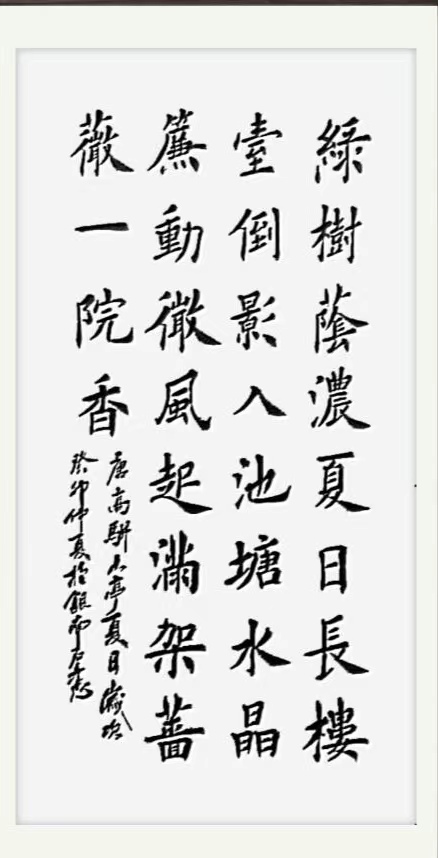 綠樹蔭濃夏日長樓
臺倒影入池塘水晶
簾動微風起滿架薔
薇一院香
唐高駢山亭夏日歲次
癸卯仲夏於銀